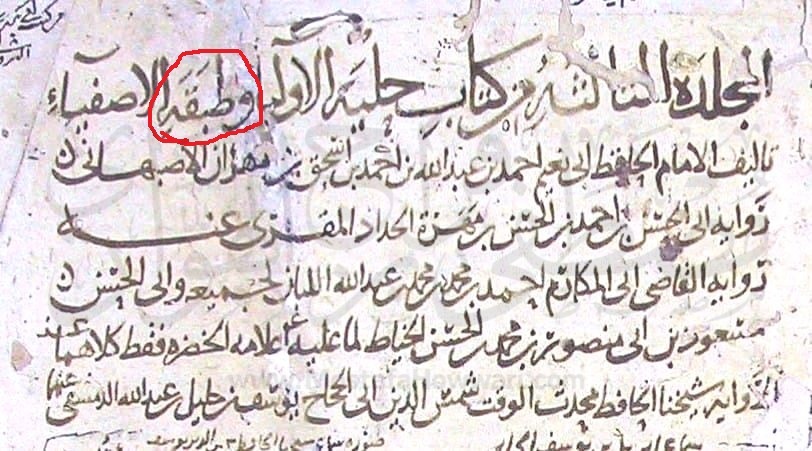 المجلدة الثالثة من كتاب حلية الأوليا وطبقة الاصفياء
تاليف الامام الحافظ ابى نعيم احمد بن عبد الله بن احمد بن اسحق بن مهران الاصبهانى
رواية ابى الحسن بن احمد بن الحسن بن مهرة الحداد المقرى عنه
رواية القاضى ابى المكارم احمد بن محمد بن محمد بن عبد الله اللبان لجميعه وابى الحسن
مسعود بن ابى منصور بن محمد بن الحسن الخياط لما عليه علامة الخضره فقط كلاهما عنه
رواية شيخنا الحافظ محدث الوقت شمس الدين ابى الحجاج يوسف بن خليل بن عبد الله الدمشقى عنهما